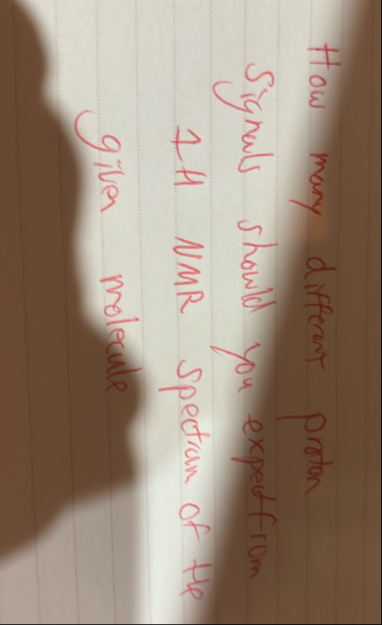 How many different proton
Signals should you expect from
1H NMR spectrum of the
given molecule